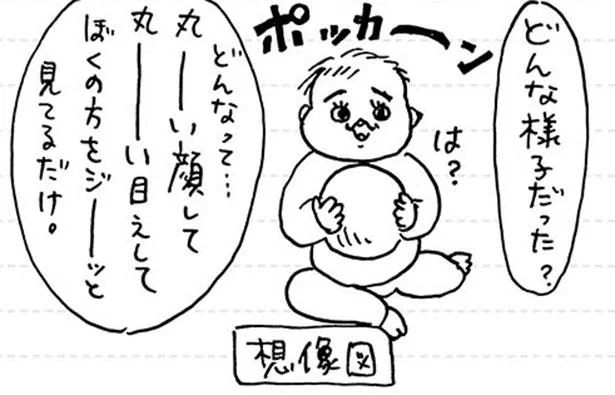 どんな様子だった?
ポッカーン
は?
どんなって…
丸ーい顔して
丸ーい目えして
ぼくの方をジーーッと
見てるだけ。
想像図